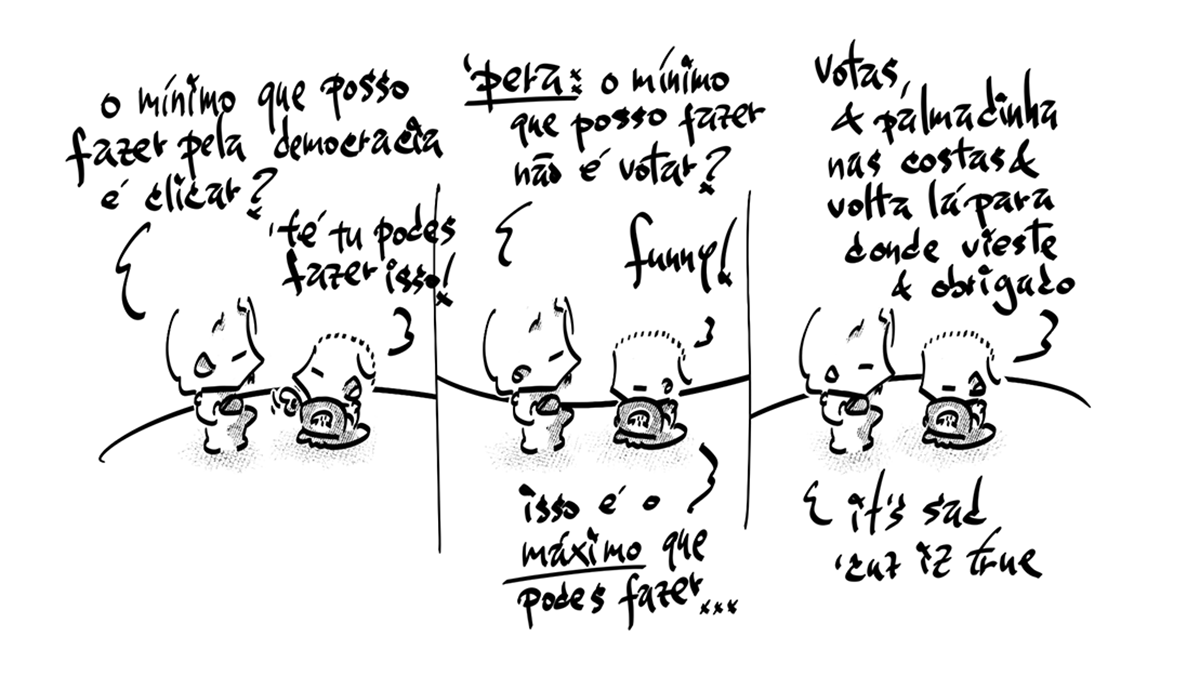 o mínimo que posso
fazer pela democracia
é clicar?
'té tu podes
fazer isso!
'pera: o mínimo
que posso fazer
não é votar?
funny!
isso é o
máximo que
podes fazer...
votas,
& palmadinha
nas costas &
volta lá para
donde vieste
& obrigado
it's sad
'cuz iz true